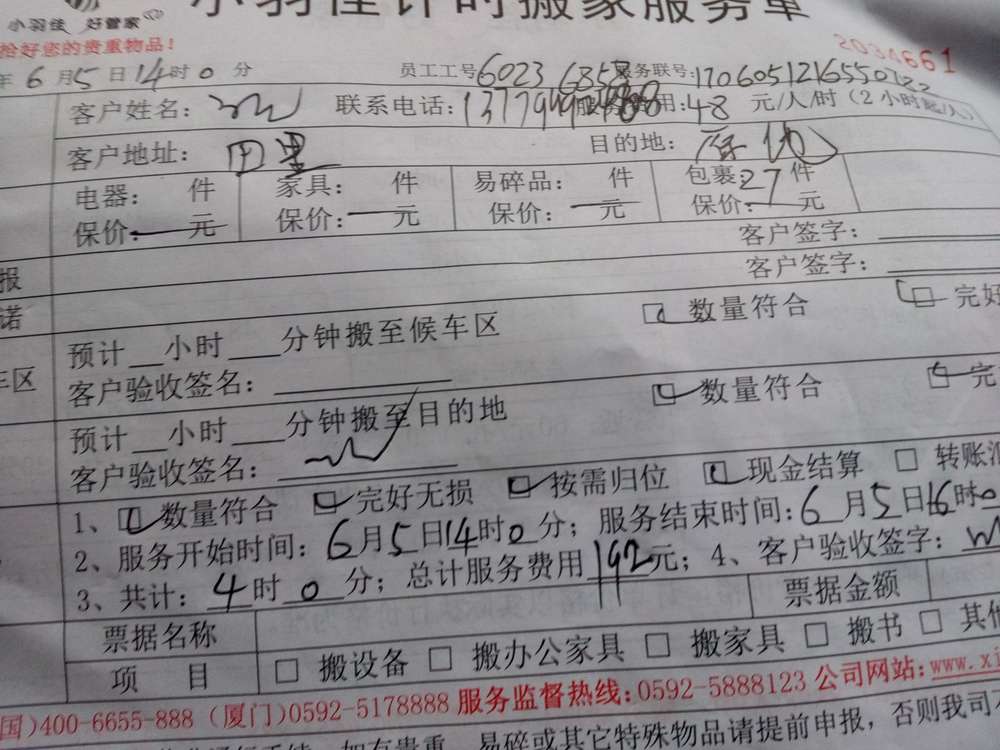 小羽佳计时搬家服务单
小羽佳 好管家
检好您的贵重物品!
2034661
年6月5日14时0分 员工工号6023 6858 服务联号:
客户姓名: 联系电话: 用:48元/人/时(2小时起/人)
客户地址: 田里 目的地: 原地
电器: 件 家具: 件 易碎品: 件 包裹:27件
保价:—元 保价:—元 保价:—元 保价:—元
客户签字:
报 客户签字:
诺
预计__小时___分钟搬至候车区 数量符合 完好
车区 客户验收签名:
预计__小时___分钟搬至目的地 数量符合 完
客户验收签名:
1、数量符合 完好无损 按需归位 现金结算 转账汇
2、服务开始时间:6月5日14时0分;服务结束时间:6月5日16时0
3、共计:4时0分;总计服务费用192元;4、客户验收签字:
票据名称 票据金额
项 目 □ 搬设备 □ 搬办公家具 □ 搬家具 □ 搬书 □ 其他
国)400-6655-888 (厦门)0592-5178888 服务监督热线:0592-5888123 公司网站:www.xi
如有贵重、易碎或其它特殊物品请提前申报,否则我司不